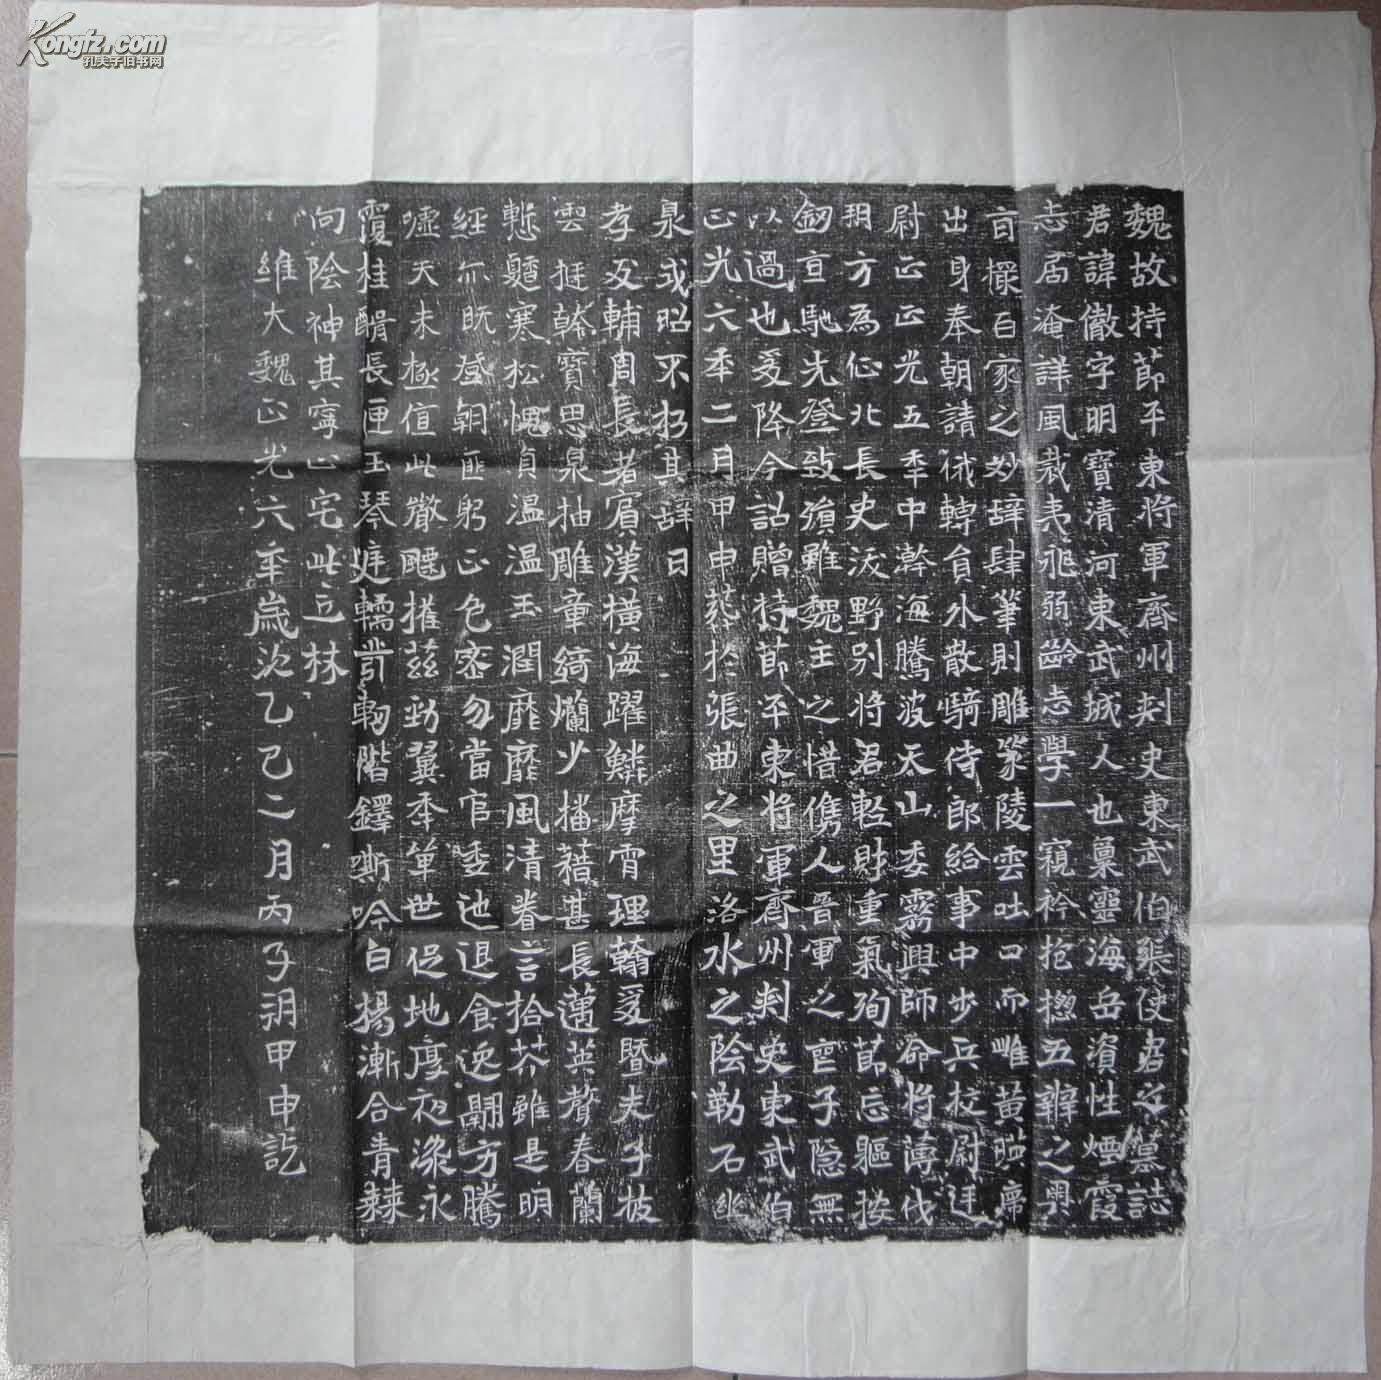 Kongfz.com
孔夫子旧书网
魏故持節平東將軍齊州刺史東武伯張使君之墓誌
君諱徹字明寶清河東武城人也稟靈海岳資性煙霞
志局淹詳風裁夷 弱齡志學一窺衿抱揔五辯之奧
百家之妙辭肆筆則雕篆陵雲吐口而雌黃 席
出身奉朝請俄轉員外散騎侍郎給事中步兵校尉
尉正正光五年中瀚海騰波天山委霧興師命將薄伐
朔方為征北長史 野別將君輕財重氣殉節忘軀按
劒亘馳先登致殞雖魏主之惜儁人晉軍之 子隱無
以過也爰降今詔贈持節平東將軍齊州刺史東武伯
正光六年二月甲申葬於張曲之里洛水之陰勒石幽
泉或昭不朽其辭曰
孝友輔周長者賓漢橫海躍鱗摩霄理翰爰暨夫子披
雲挺 寶思泉抽雕章綺爛少播藉甚長邁英聲春蘭
慙馨寒松愧貞溫溫玉潤靡靡風清眷言拾芥雖是明
經亦既登朝匪躬正色密勿當官委迆退食逸翮方騰
噓天未極值此 飈摧茲勁翼季 世促地厚夜 永
覆桂酳長匣玉琴 輀引軔階鐸嘶吟白楊漸合青棘
向陰神其寧止宅此丘林
維大魏正光六年歲次乙巳二月丙子朔甲申訖